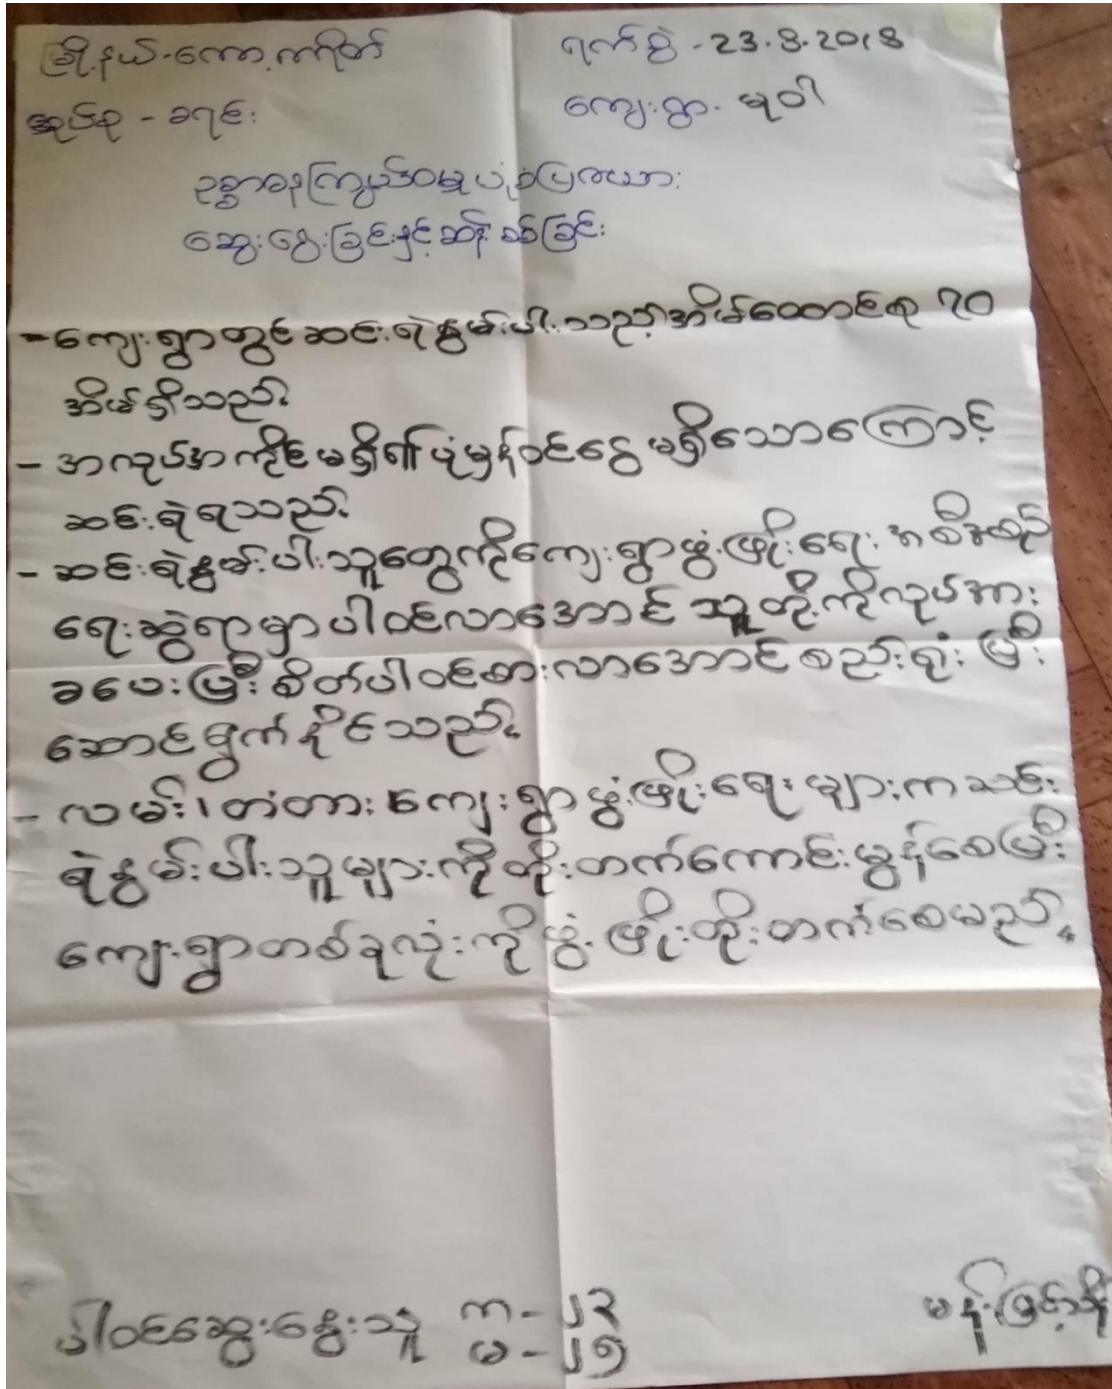 မြို့နယ်-ကော့ကရိတ် ရက်စွဲ - 23.8.2018
အုပ်စု - ခရင်း ကျေးရွာ - မုဝါ
ဥစ္စာဓနကြွယ်ဝမှုပုံစံပြကယား
ဆွေးနွေးခြင်းနှင့်ဆန်းစစ်ခြင်း
- ကျေးရွာတွင်ဆင်းရဲနွမ်းပါးသည့်အိမ်ထောင်စု ၇၀
အိမ်ရှိသည်။
- အလုပ်အကိုင်မရှိ၍ ပုံမှန်ဝင်ငွေမရှိသောကြောင့်
ဆင်းရဲရသည်။
- ဆင်းရဲနွမ်းပါးသူတွေကိုကျေးရွာဖွံ့ဖြိုးရေး အစီအစဉ်
ရေးဆွဲရာမှာပါဝင်လာအောင် သူတို့ကိုလုပ်အား
ခပေးပြီး စိတ်ပါဝင်စားလာအောင်စည်းရုံးပြီး
ဆောင်ရွက်နိုင်သည်။
- လမ်း၊ တံတား ကျေးရွာဖွံ့ဖြိုးရေးများကဆင်း
ရဲနွမ်းပါးသူများကိုတိုးတက်ကောင်းမွန်စေပြီး
ကျေးရွာတစ်ခုလုံးကိုဖွံ့ဖြိုးတိုးတက်စေမည်။
ပါဝင်ဆွေးနွေးသူ က - ၂၃
မ - ၂၅